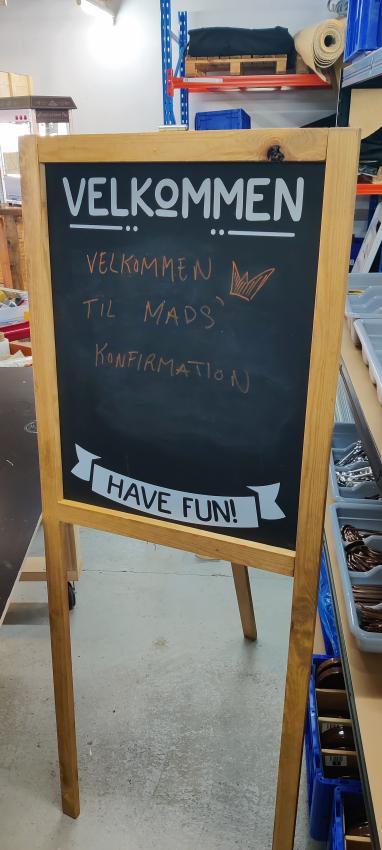 VELKOMMEN
VELKOMMEN
TIL MADS'
KONFIRMATION
HAVE FUN!